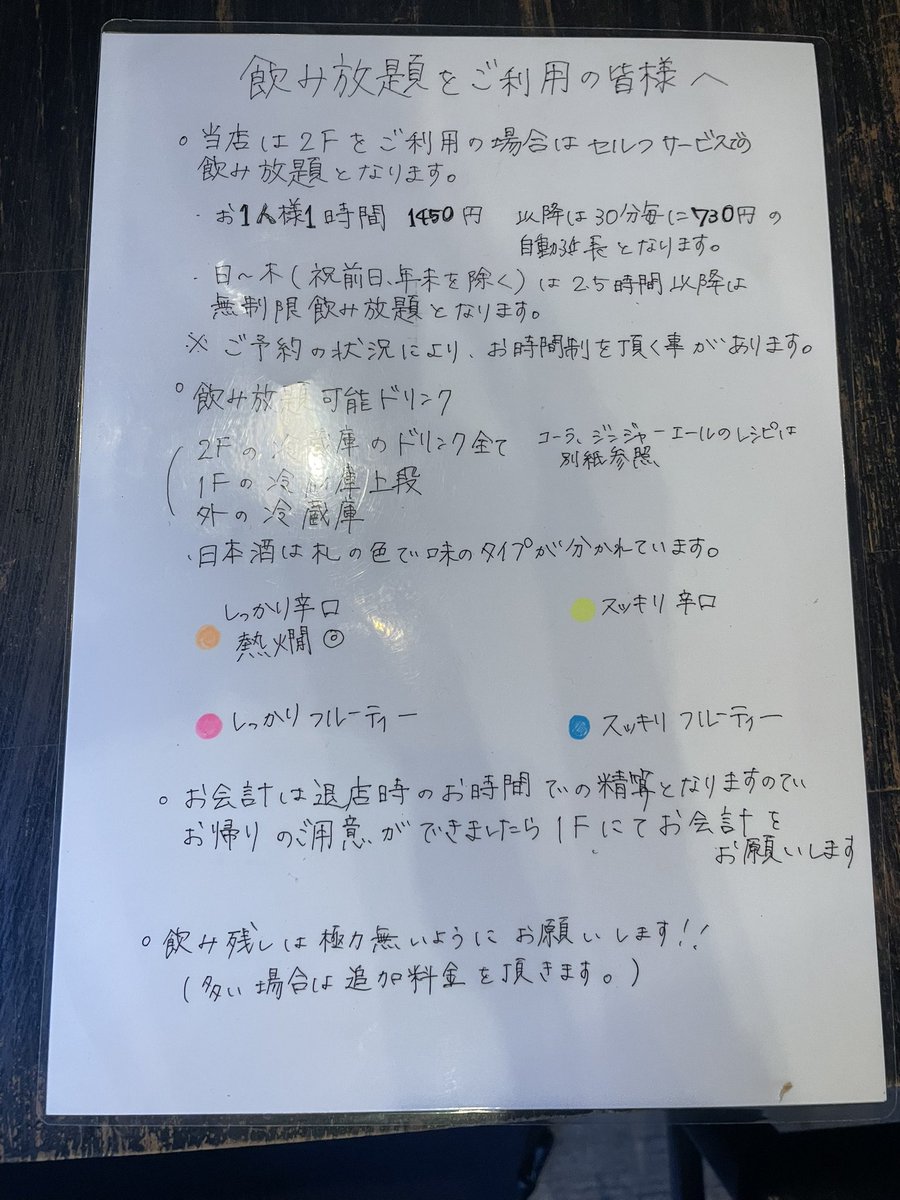 飲み放題をご利用の皆様へ
○当店は2Fをご利用の場合はセルフサービスでの
飲み放題となります。
・お1人様1時間 1450円 以降は30分毎に730円の
自動延長となります。
・日~木(祝前日、年末を除く)は2.5時間以降は
無制限飲み放題となります。
※ご予約の状況により、お時間制を頂く事があります。
○飲み放題可能ドリンク
2Fの冷蔵庫のドリンク全て コーラ、ジンジャーエールのレシピは
別紙参照
1Fの冷蔵庫上段
外の冷蔵庫
・日本酒は札の色で味のタイプが分かれています。
しっかり辛口
熱燗◎
スッキリ辛口
しっかりフルーティー
スッキリフルーティー
○お会計は退店時のお時間での精算となりますのでい
お帰りのご用意ができましたら1Fにてお会計を
お願いします
○飲み残しは極力無いようにお願いします!!
(多い場合は追加料金を頂きます。)